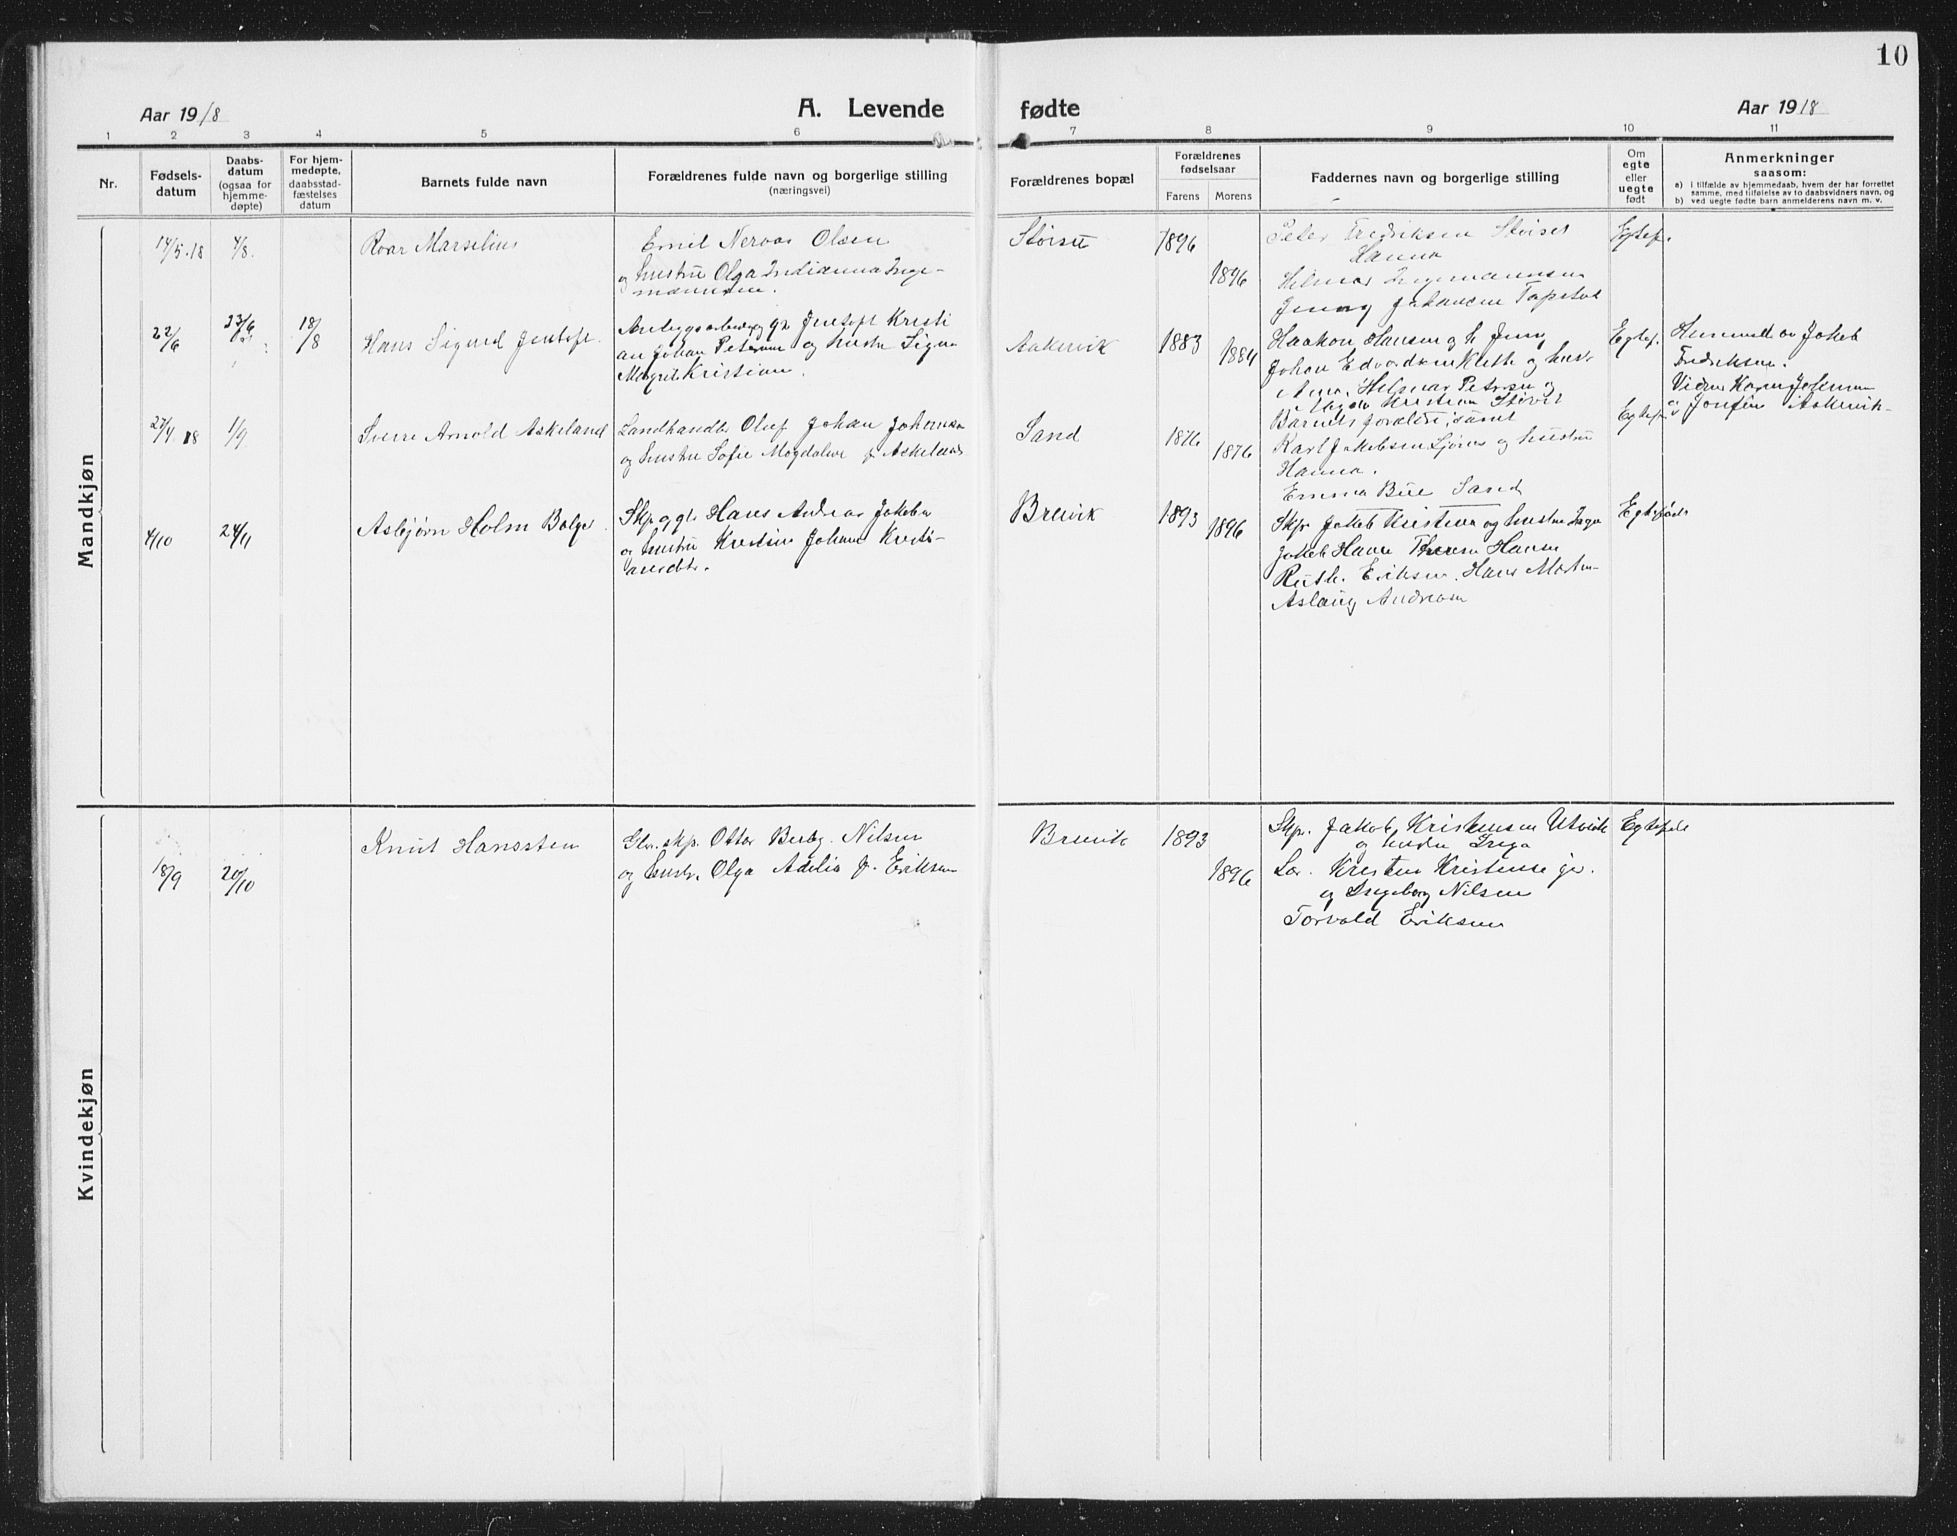 10
Aar 1918
A. Levende
fødte
Aar 1918
1 2 3 4 5 6 7 8 9 10 11
Nr.
Fødsels-
datum
Daabs-
datum
(ogsaa for
hjemme-
døpte)
For hjem-
medøpte,
daabsstad-
fæstelses
datum
Barnets fulde navn
Forældrenes fulde navn og borgerlige stilling
(næringsvei)
Forældrenes bopæl
Forældrenes
fødselsaar
Farens Morens
Faddernes navn og borgerlige stilling
Om
egte
eller
uegte
født
Anmerkninger
saasom:
a) i tilfælde av hjemmedaab, hvem der har forrettet
samme, med tilføielse av to daabsvidners navn, og
b) ved uegte fødte barn anmelderens navn m. v.
Mandkjøn
14/5.18 4/8. Roar Marselius Emil Olsen 1896 Peter Fredriksen Støiset Egtef.
Hanna
og hustru Olga Indianna Inge- 1896 Helmar Ingemannsen
mannsen. Jenny Johansen
22/6 23/6 18/8 Hans Sigurd Jentoft. Anlægsarbeider Jentoft Kristi Aakervik 1883 1884 Haakon Hansen og h. Jenny Egtef. Hjemmed. av Jakob
an Johan Petersen og hustru Signe Johan Edvardsen og hust. Fredriksen.
Margrit Kristiansen. Anna, Helmar Petersen og Karen Johansen
Kristian Støiset og Aakervik
27/4 18 1/9 Sverre Arnold Askeland Landhandler Oluf Johan Johansen Sand 1876 1876 Barnets foreldre, samt Egtef.
og hustru Sofie Magdalene f. Askeland Karl Jakobsen og hustru
Hanna.
Emma Bue Sand
4/10 24/11 Asbjørn Holm Bolger Skp. og gb. Hans Andreas Jakobsen Brevik 1893 1896 Skp. Jakob Kristensen og hustru Inga Egtefødt
og hustru Kristine Johanne Kristi- Jakob Hansen Therese Hansen
ansdtr. Ruth Eriksen. Hans Morten-
Aslaug Andreasen
Kvindekjøn
18/9 20/10 Knut Hanssten skp. Ottar Berg. Nilsen Brevik 1893 Skp. Jakob Kristensen Utvik Egtefødt
og hustru Inga
og hustr. Olga Adelia f. Eriksen 1896 Kristen Kristensen jr.
og Ingeborg Nilsen
Torvald Eriksen